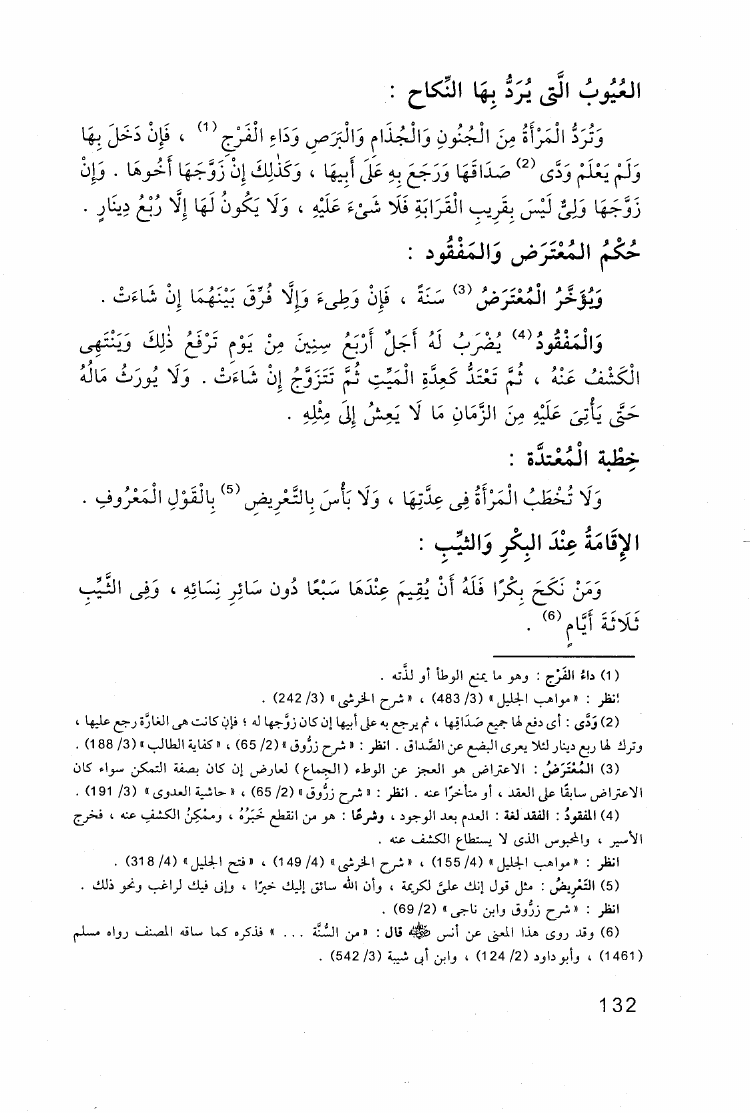 العُيُوبُ الَّتِي يُرَدُّ بِهَا النِّكَاحِ :
وَتُرَدُّ الْمَرْأَةُ مِنَ الْجُنُونِ وَالْجُذَامِ وَالْبَرَصِ وَدَاءِ الْفَرْجِ (1) ، فَإِنْ دَخَلَ بِهَا
وَلَمْ يَعْلَمْ وَدَّى (2) صَدَاقَهَا وَرَجَعَ بِهِ عَلَى أَبِيهَا ، وَكَذَٰلِكَ إِنْ زَوَّجَهَا أَخُوهَا . وَإِنْ
زَوَّجَهَا وَلِيٌّ لَيْسَ بِقَرِيبِ الْقَرَابَةِ فَلَا شَيْءَ عَلَيْهِ ، وَلَا يَكُونُ لَهَا إِلَّا رُبُعُ دِينَارٍ .
حُكْمُ المُعْتَرَضِ وَالمَفْقُود :
وَيُؤَخَّرُ الْمُعْتَرَضُ (3) سَنَةً ، فَإِنْ وَطِىءَ وَإِلَّا فُرِّقَ بَيْنَهُمَا إِنْ شَاءَتْ .
وَالْمَفْقُودُ (4) يُضْرَبُ لَهُ أَجَلٌ أَرْبَعُ سِنِينَ مِنْ يَوْمِ تَرْفَعُ ذٰلِكَ وَيَنْتَهِى
الْكَشْفُ عَنْهُ ، ثُمَّ تَعْتَدُّ كَعِدَّةِ الْمَيِّتِ ثُمَّ تَتَزَوَّجُ إِنْ شَاءَتْ . وَلَا يُورَثُ مَالُهُ
حَتَّى يَأْتِىَ عَلَيْهِ مِنَ الزَّمَانِ مَا لَا يَعِشُ إِلَى مِثْلِهِ .
خِطْبة الْمُعْتدَّة :
وَلَا تُخْطَبُ الْمَرْأَةُ فِى عِدَّتِهَا ، وَلَا بَأْسَ بِالتَّعْرِيضِ (5) بِالْقَوْلِ الْمَعْرُوفِ .
الإِقَامَةُ عِنْدَ البِكْرِ وَالثيِّبِ :
وَمَنْ نَكَحَ بِكْرًا فَلَهُ أَنْ يُقِيمَ عِنْدَهَا سَبْعًا دُون سَائِرِ نِسَائِهِ ، وَفِى الثَّيِّبِ
ثَلَاثَةَ أَيَّامٍ (6) .
(1) داءُ الفَرْجِ : وهو ما يمنع الوطأ أو لذَّته .
انظر : « مواهب الجليل » (3/ 483) ، « شرح الخرشى » (3/ 242) .
(2) وَدَّى : أى دفع لها جميع صَدَاقِها ، ثم يرجع به على أبيها إن كان زوَّجها له ؛ فإن كانت هى الغارَّة رجع عليها ،
وترك لها ربع دينار لئلا يعرى البضع عن الصَّداق . انظر : « شرح زرُّوق » (2/ 65) ، « كفاية الطالب » (3/ 188) .
(3) المُعْتَرَضُ : الاعتراض هو العجز عن الوطء (الجماع) لعارض إن كان بصفة التمكن سواء كان
الاعتراض سابقًا على العقد ، أو متأخرًا عنه . انظر : « شرح زرُّوق » (2/ 65) ، « حاشية العدوى » (3/ 191) .
(4) المفقودُ : الفقد لغة : العدم بعد الوجود ، وشرعًا : هو من انقطع خَبَرُهُ ، وممْكِنُ الكشف عنه ، فخرج
الأسير ، والمحبوس الذى لا يستطاع الكشف عنه .
انظر : « مواهب الجليل » (4/ 155) ، « شرح الخرشى » (4/ 149) ، « فتح الجليل » (4/ 318) .
(5) التَعْرِيضُ : مثل قول إنك علىَّ لكريمة ، وأن الله سائق إليك خيرًا ، وإنى فيك لراغب ونحو ذلك .
انظر : « شرح زرُّوق وابن ناجى » (2/ 69) .
(6) وقد روى هذا المعنى عن أنس رضي الله عنه قال : « من السُّنَّة ... » فذكره كما ساقه المصنف رواه مسلم
(1461) ، وأبو داود (2/ 124) ، وابن أبى شيبة (3/ 542) .
132